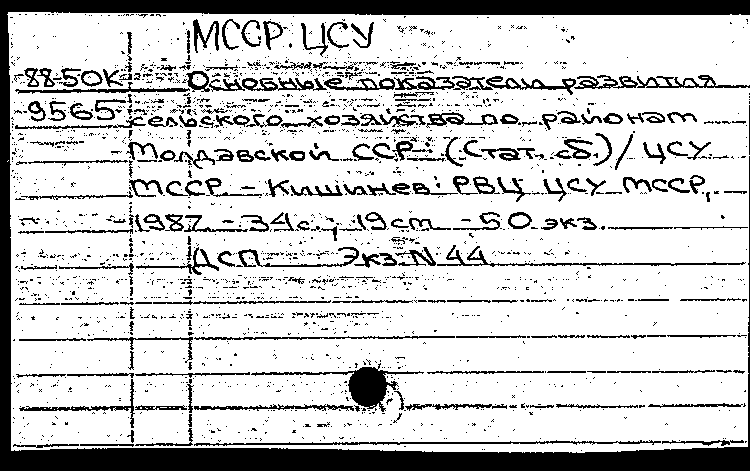 МССР. ЦСУ
88-50К Основные показатели развития
9565 сельского хозяйства по районам
Молдавской ССР: (Стат. сб.) / ЦСУ
МССР. - Кишинев: РВЦ ЦСУ МССР,
1987. - 34 с.; 19 см - 50 экз.
ДСП Экз. N 44